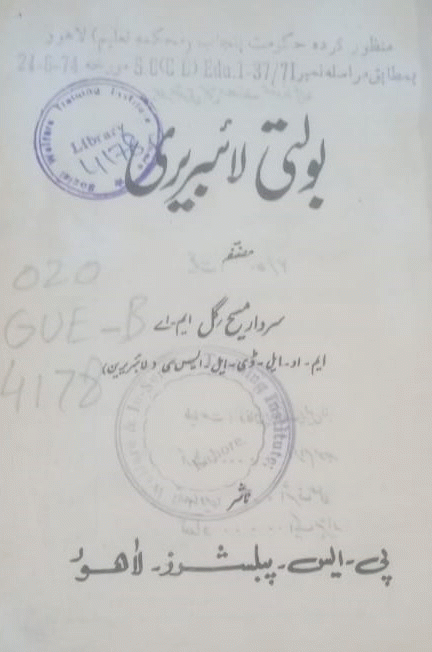 منظور کردہ حکومت پنجاب (محکمہ تعلیم) لاہور
بمطابق مراسلہ نمبر S.O(C.D) Edu.1-37/71 مورخہ 24-6-74
Social Welfare Training Institute
Library
4178
بولتی لائبریری
مصنفہ
020
سردار مسیح گل ایم-اے
GUE-B
ایم-او-ایل-ڈی-ایل-ایس سی (لائبریرین)
4178
ناشر
پی-ایس-پبلشرز-لاہور